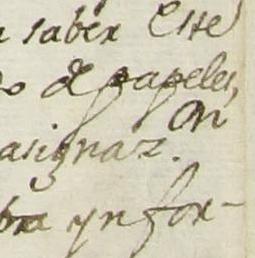 saber Este
de papeles,
on
asignaz.
bra ynfor-